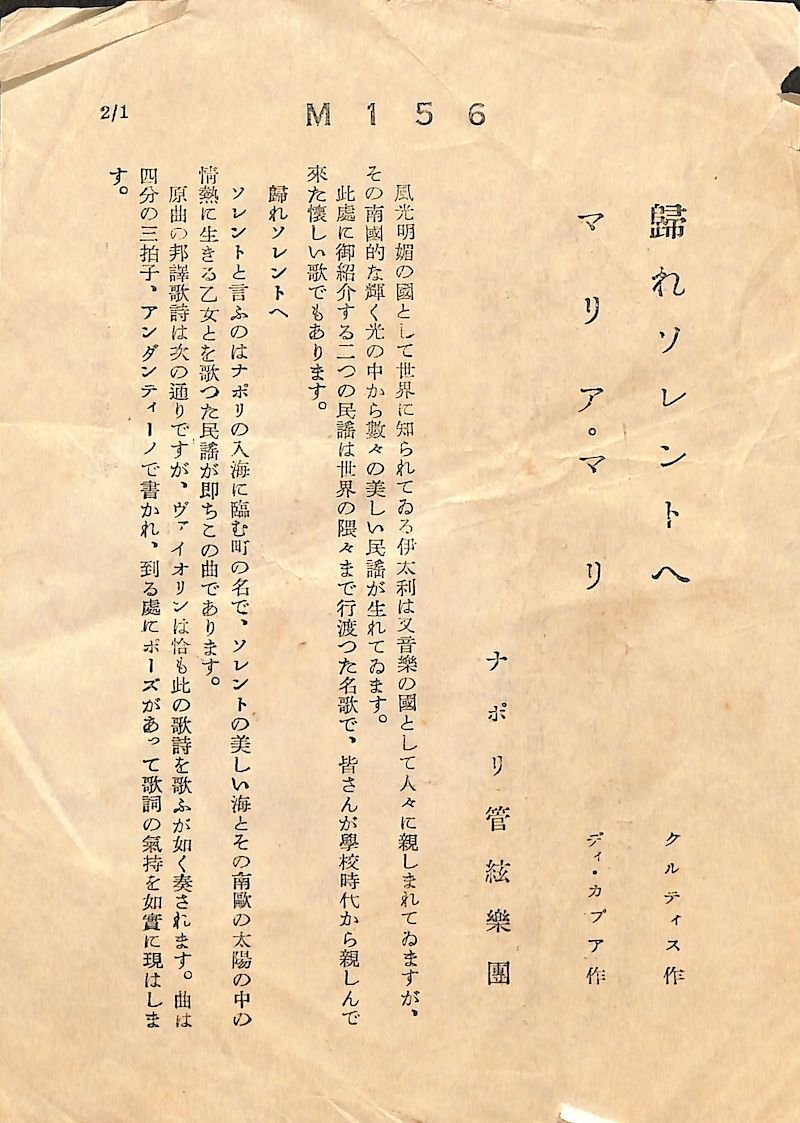 M156
2/1
歸れソレントへ
クルティス作
マリア。マリ
ディ・カプア作
ナポリ管絃樂團
風光明媚の國として世界に知られてゐる伊太利は又音樂の國として人々に親しまれてゐますが、
その南國的な輝く光の中から數々の美しい民謠が生れてゐます。
此處に御紹介する二つの民謠は世界の隈々まで行渡つた名歌で、皆さんが學校時代から親しんで
來た懷しい歌でもあります。
歸れソレントへ
ソレントと言ふのはナポリの入海に臨む町の名で、ソレントの美しい海とその南歐の太陽の中の
情熱に生きる乙女とを歌つた民謠が即ちこの曲であります。
原曲の邦譯歌詩は次の通りですが、ヴァイオリンは恰も此の歌詩を歌ふが如く奏されます。曲は
四分の三拍子、アンダンティーノで書かれ、到る處にポーズがあって歌詞の氣持を如實に現はしま
す。